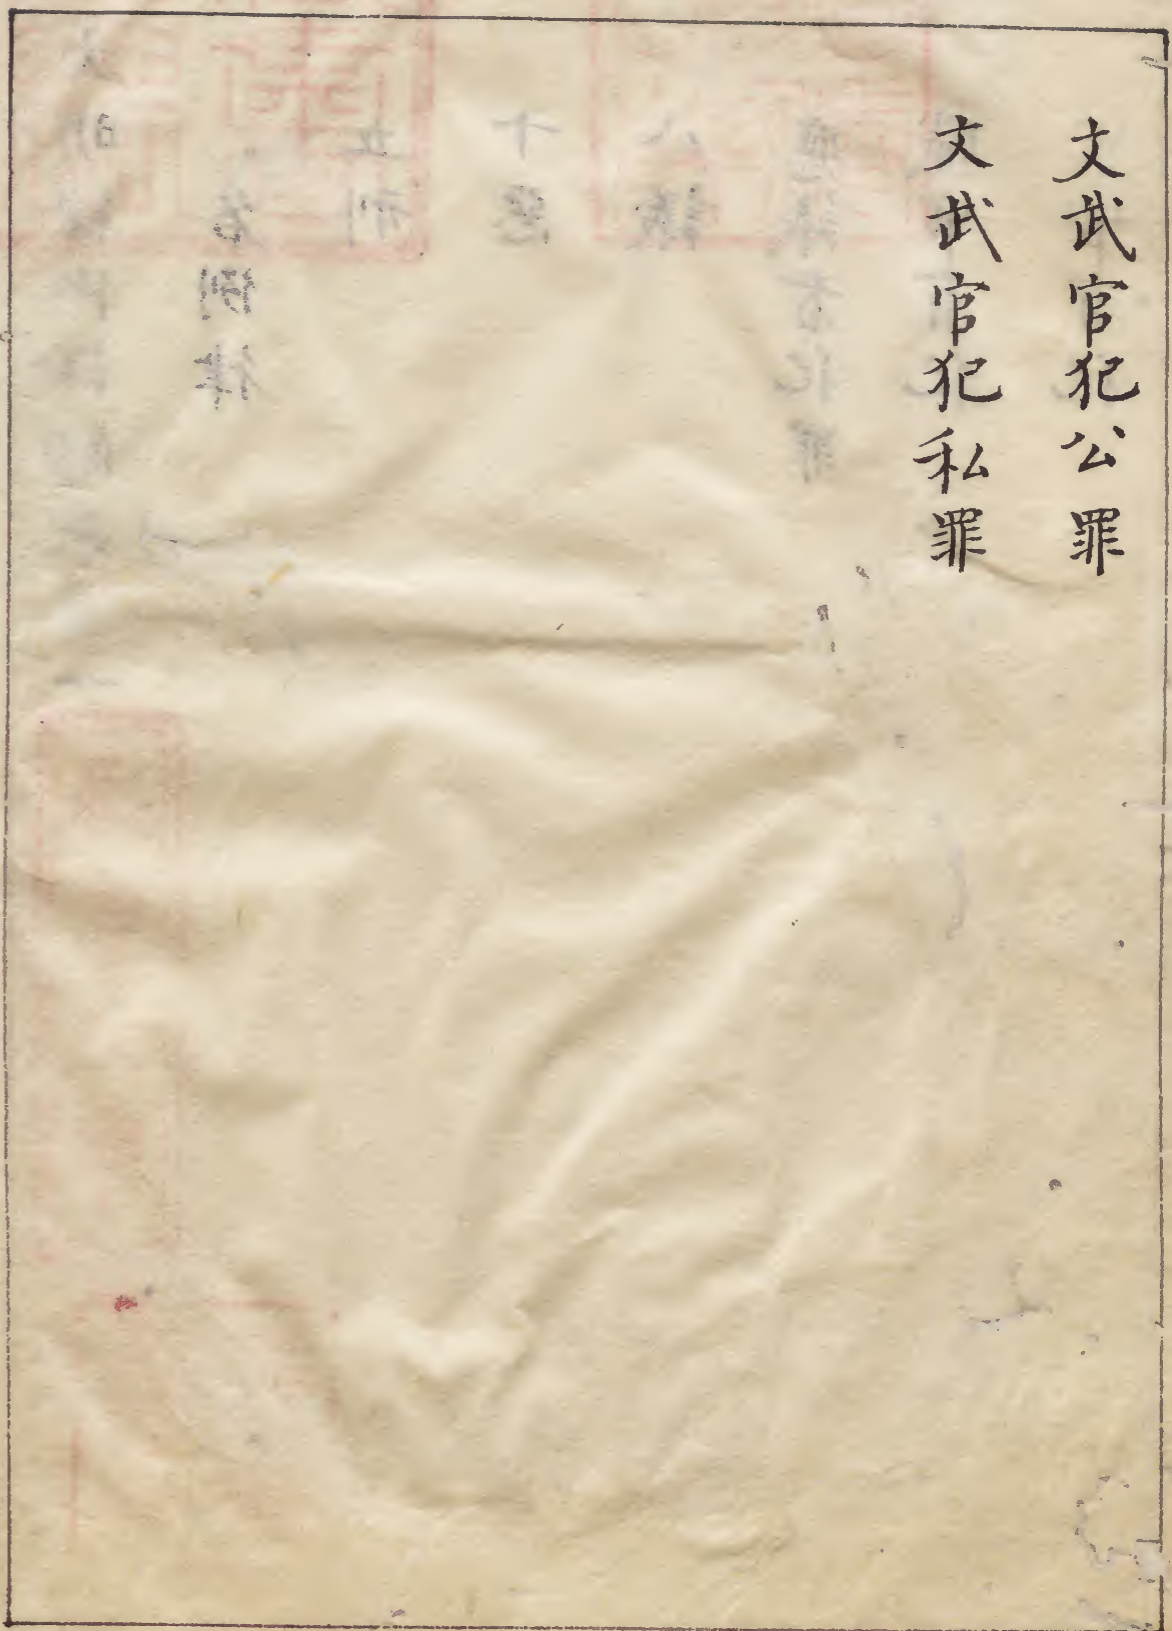 文武官犯公罪
文武官犯私罪